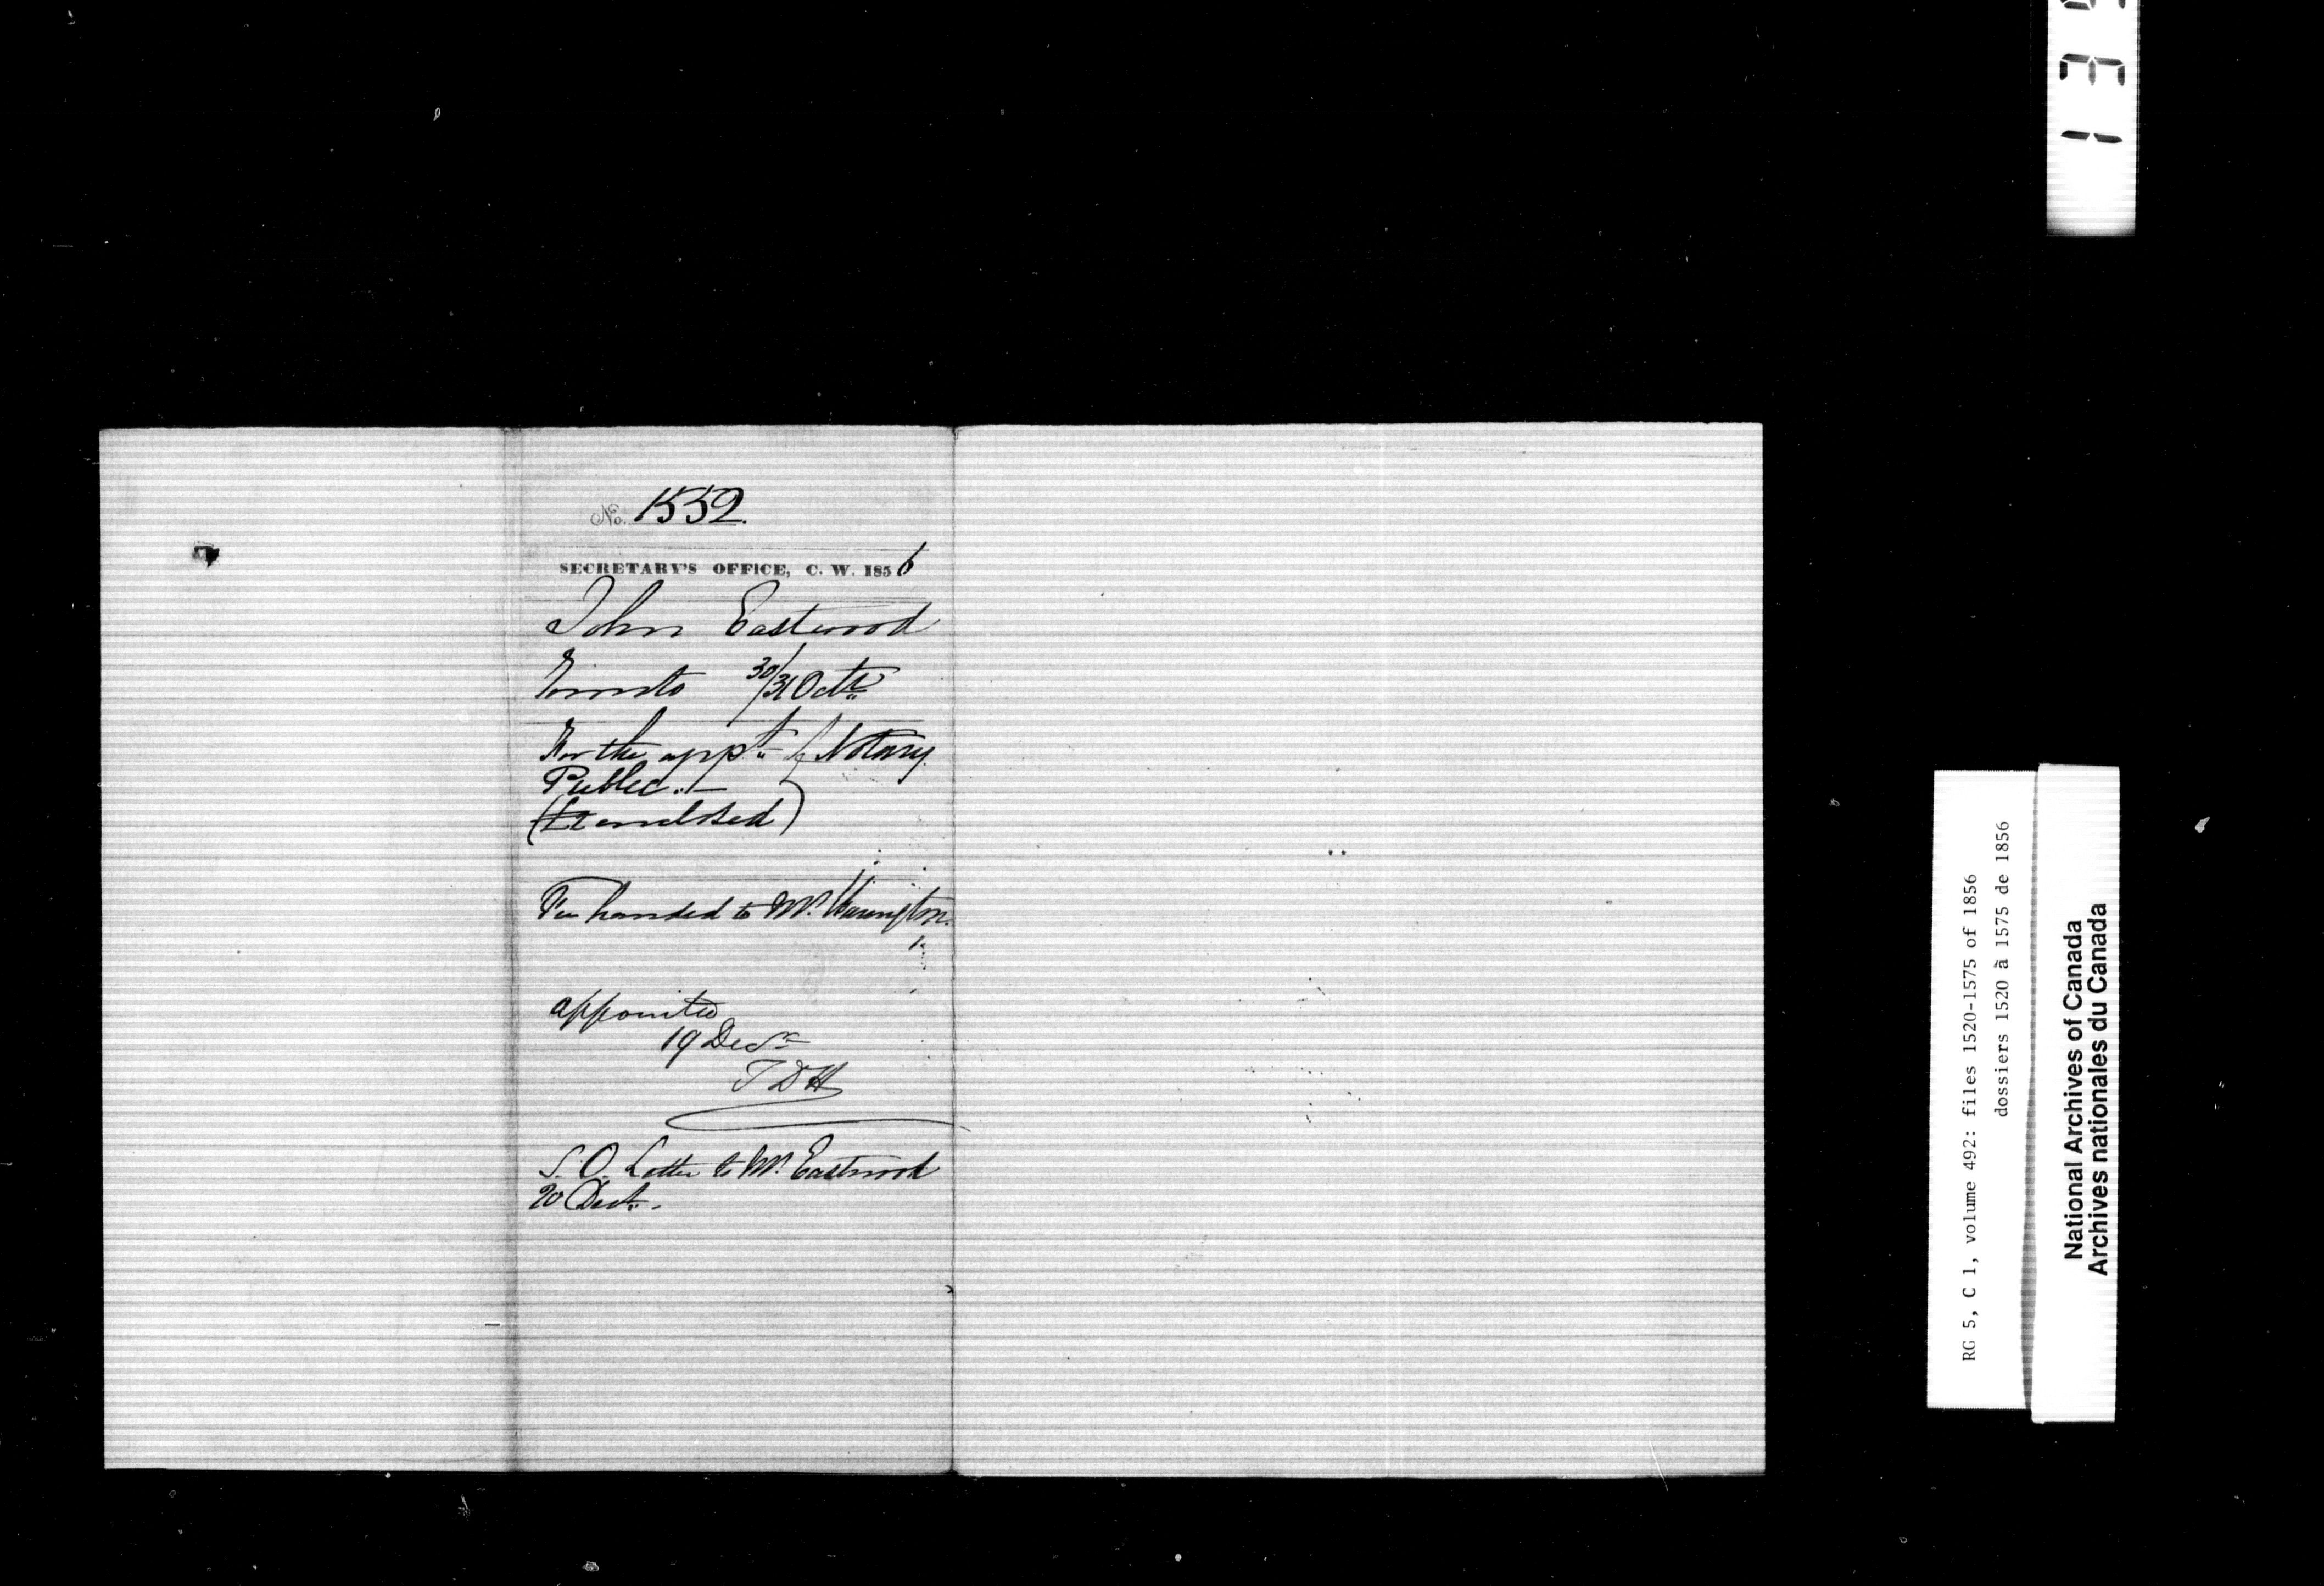 No. 1552.
SECRETARY'S OFFICE, C. W. 1856
John Eastwood
Toronto 30/31 Octr
For the appt of Notary
Public. —
(£1 enclosed)
Fee handed to Mr. Harington.
appointed
19 Decr
T D H
S. O. Letter to Mr. Eastwood
20 Decr. -
RG 5, C 1, volume 492: files 1520-1575 of 1856
dossiers 1520 à 1575 de 1856
National Archives of Canada
Archives nationales du Canada